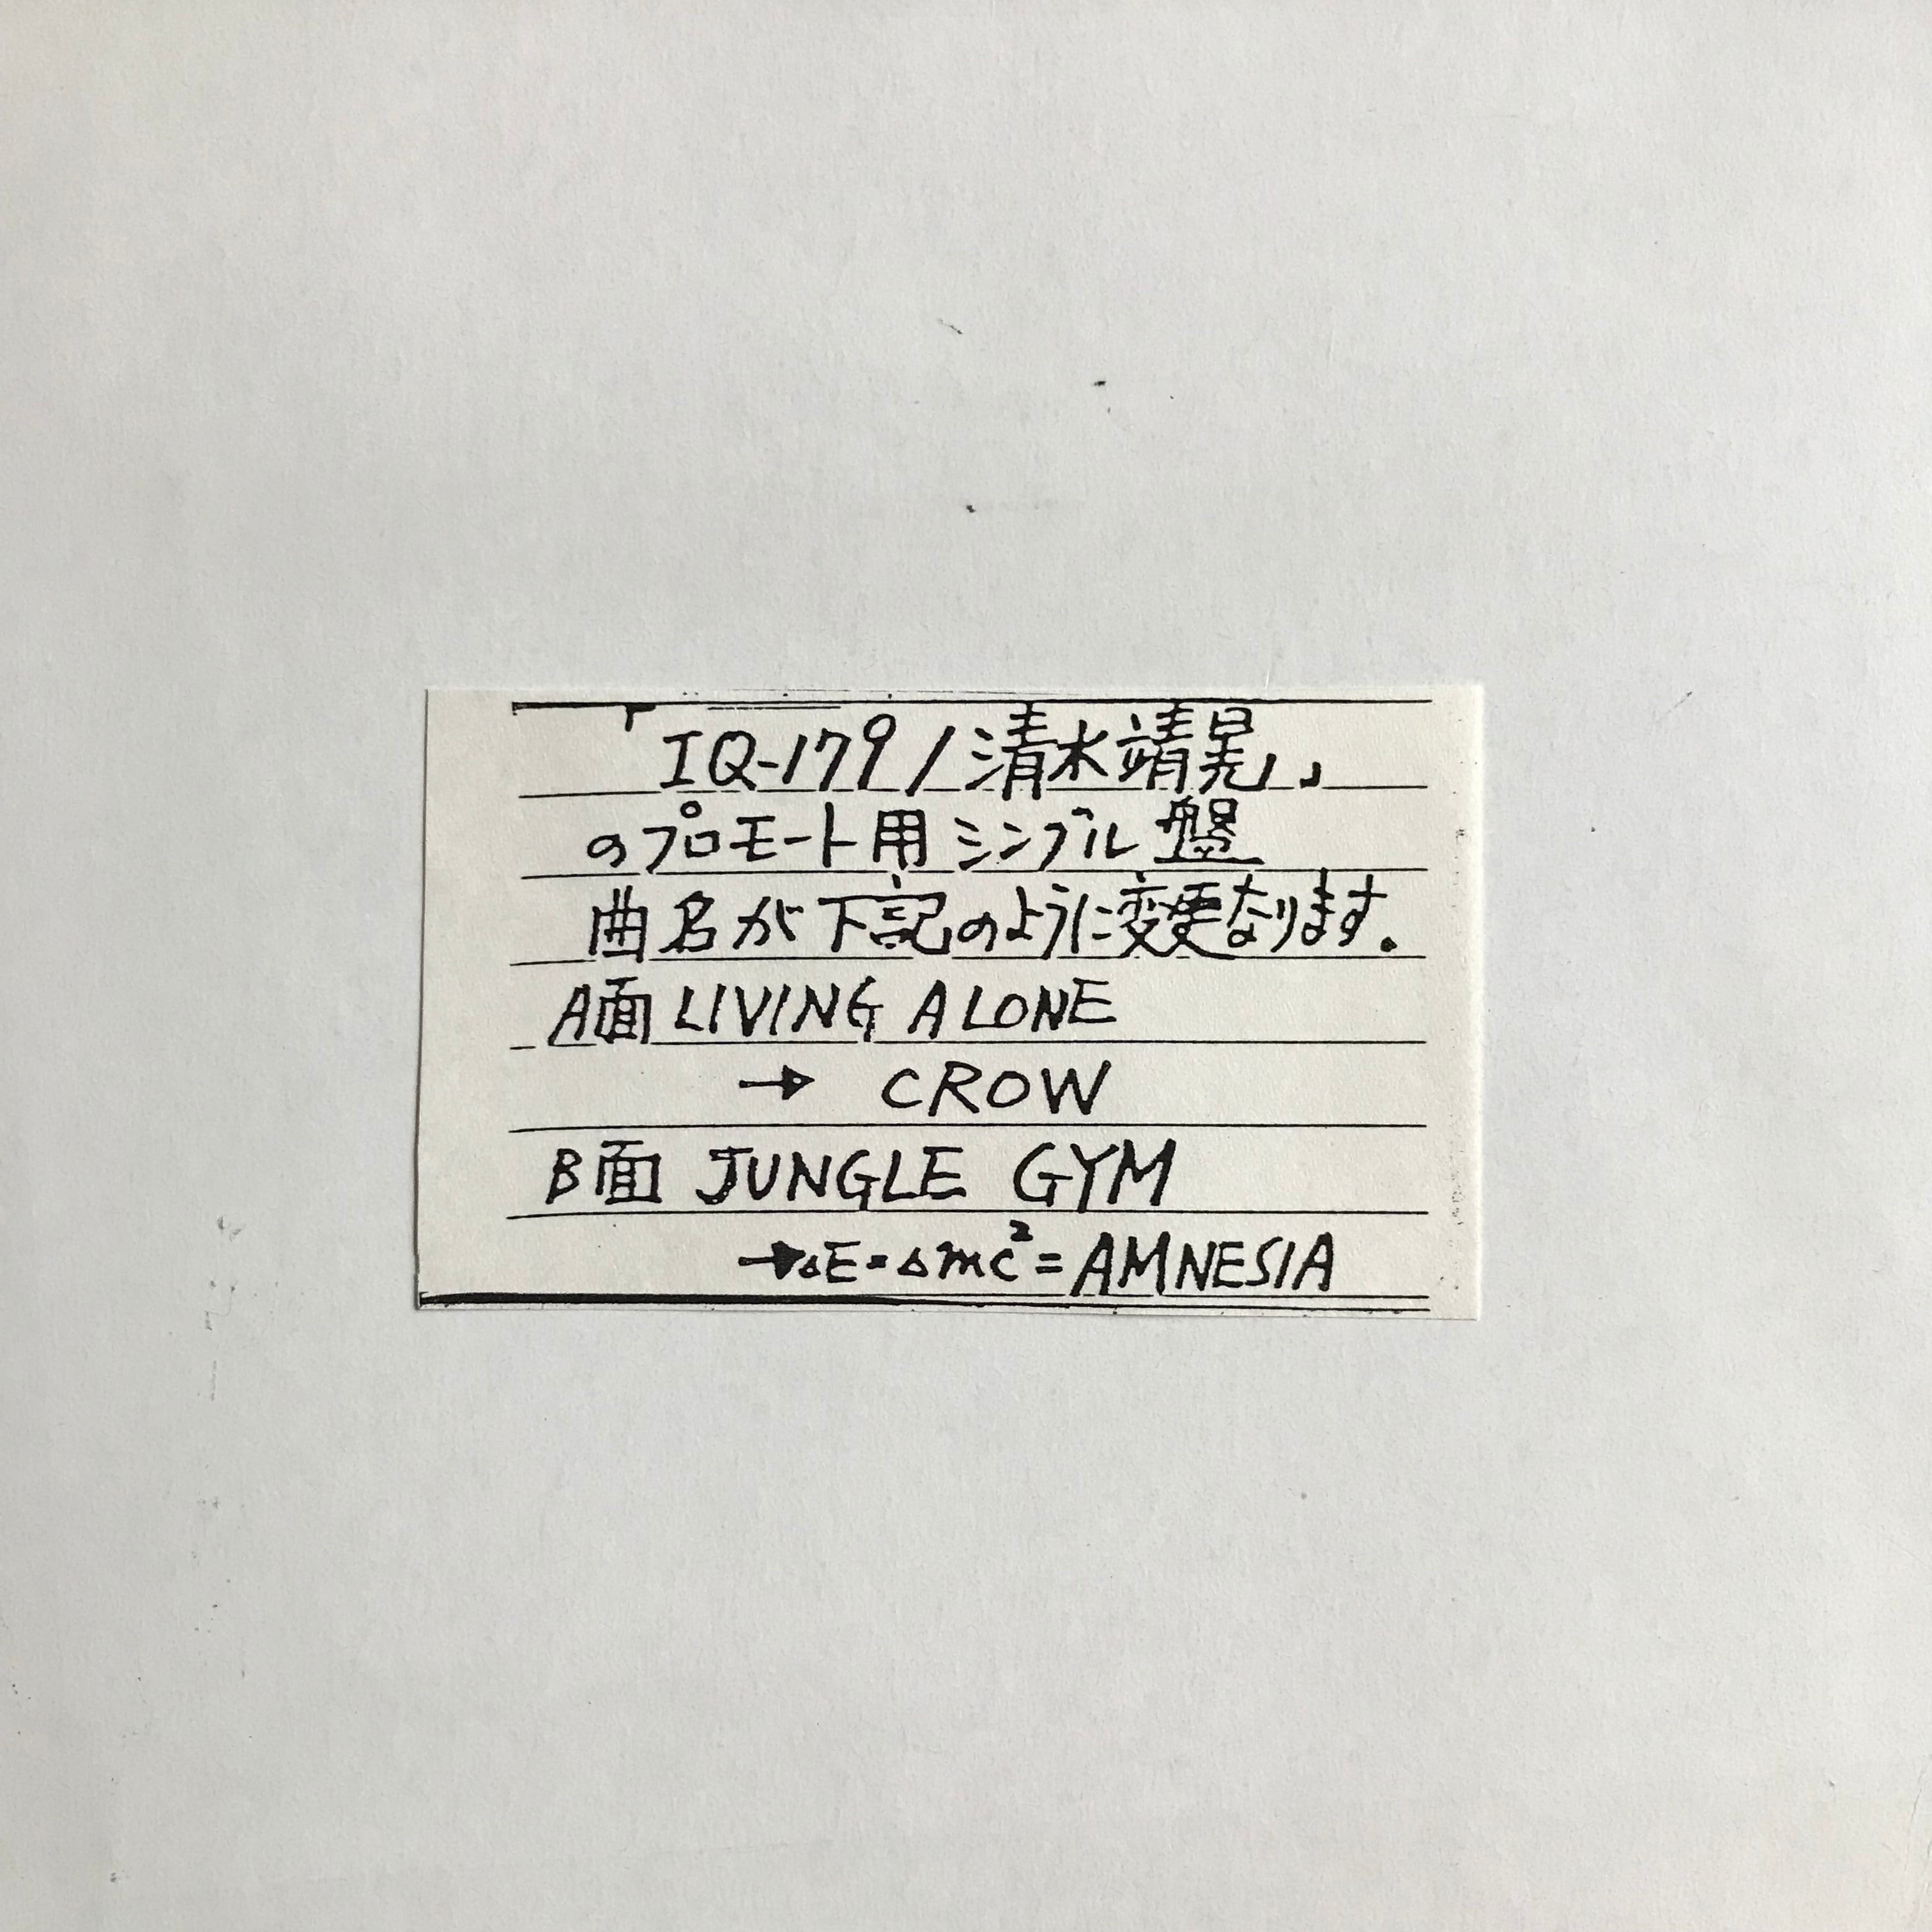 「IQ-179/清水靖晃」
のプロモート用シングル盤
曲名が下記のように変更なります。
A面 LIVING ALONE
→ CROW
B面 JUNGLE GYM
→△E=△mc²=AMNESIA